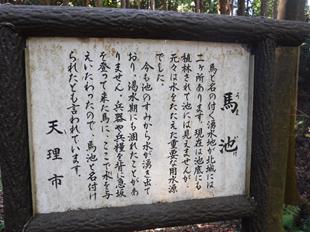 馬池
うま いけ
馬と名の付く湧水地が北城には
二ヶ所あります。現在は池底にも
植林されて池には見えませんが、
元々は水をたたえた重要な用水源
でした。
今も池のすみから水が湧き出て
おり、渇水期にも涸れたことがあ
りません。兵器や兵糧を背に急坂
を登って来た馬に、ここで水を与
えいたわったので、馬池と名付け
られたとも言われています。
天理市